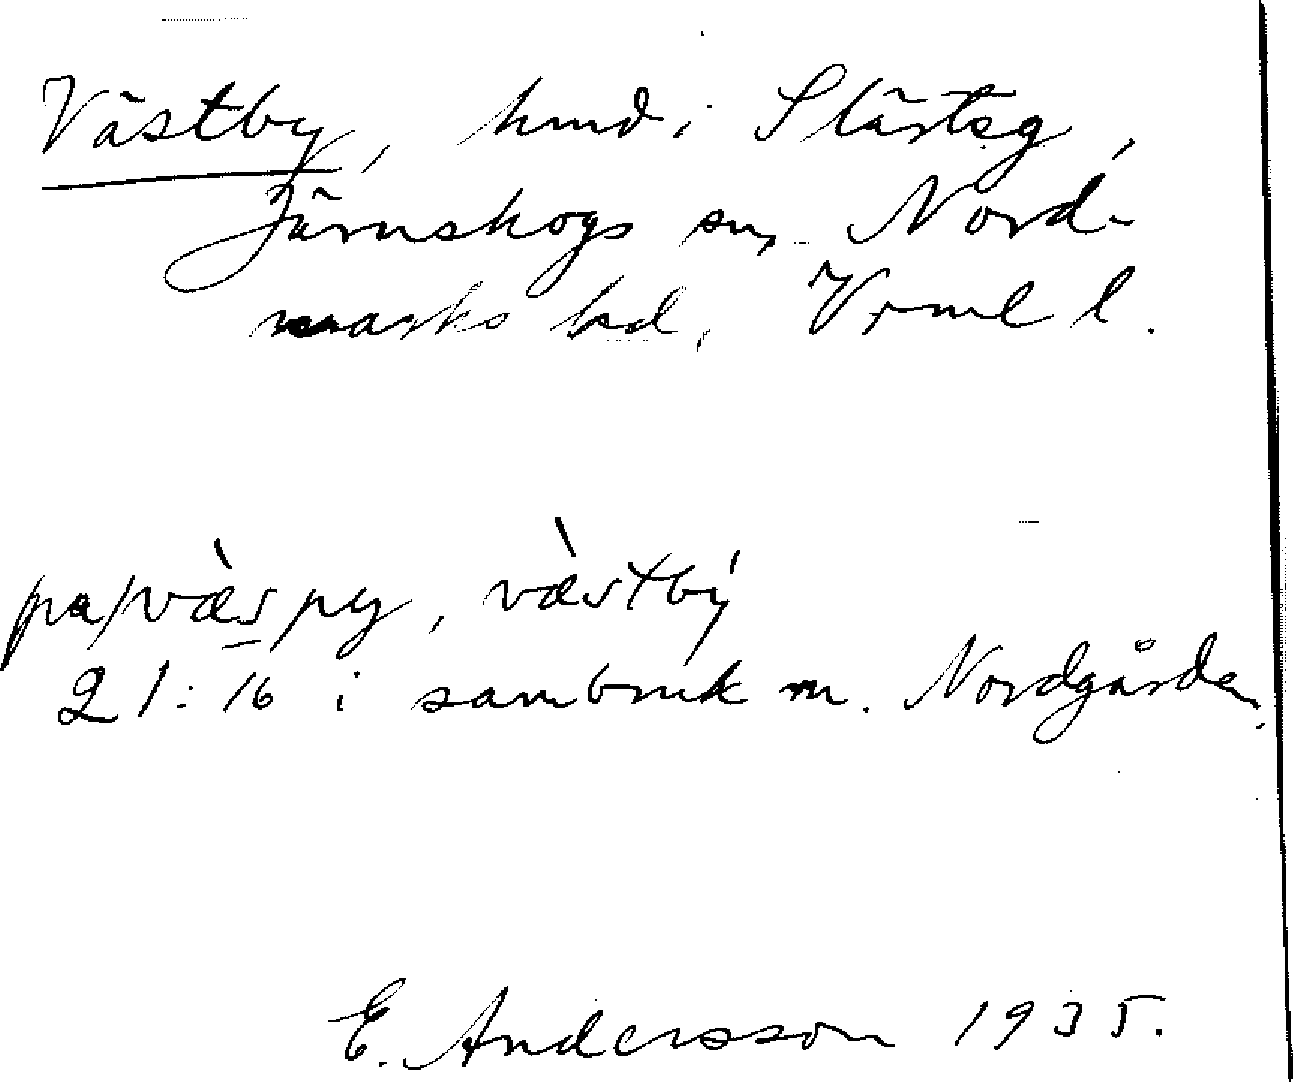 Västby, hmd i Slärtsg,
Järnskogs sn, Nord-
marks hd, Vrml l.
pa/væs py, væstby
21:16 i sambruk m. Nordgården.
E. Andersson 1935.